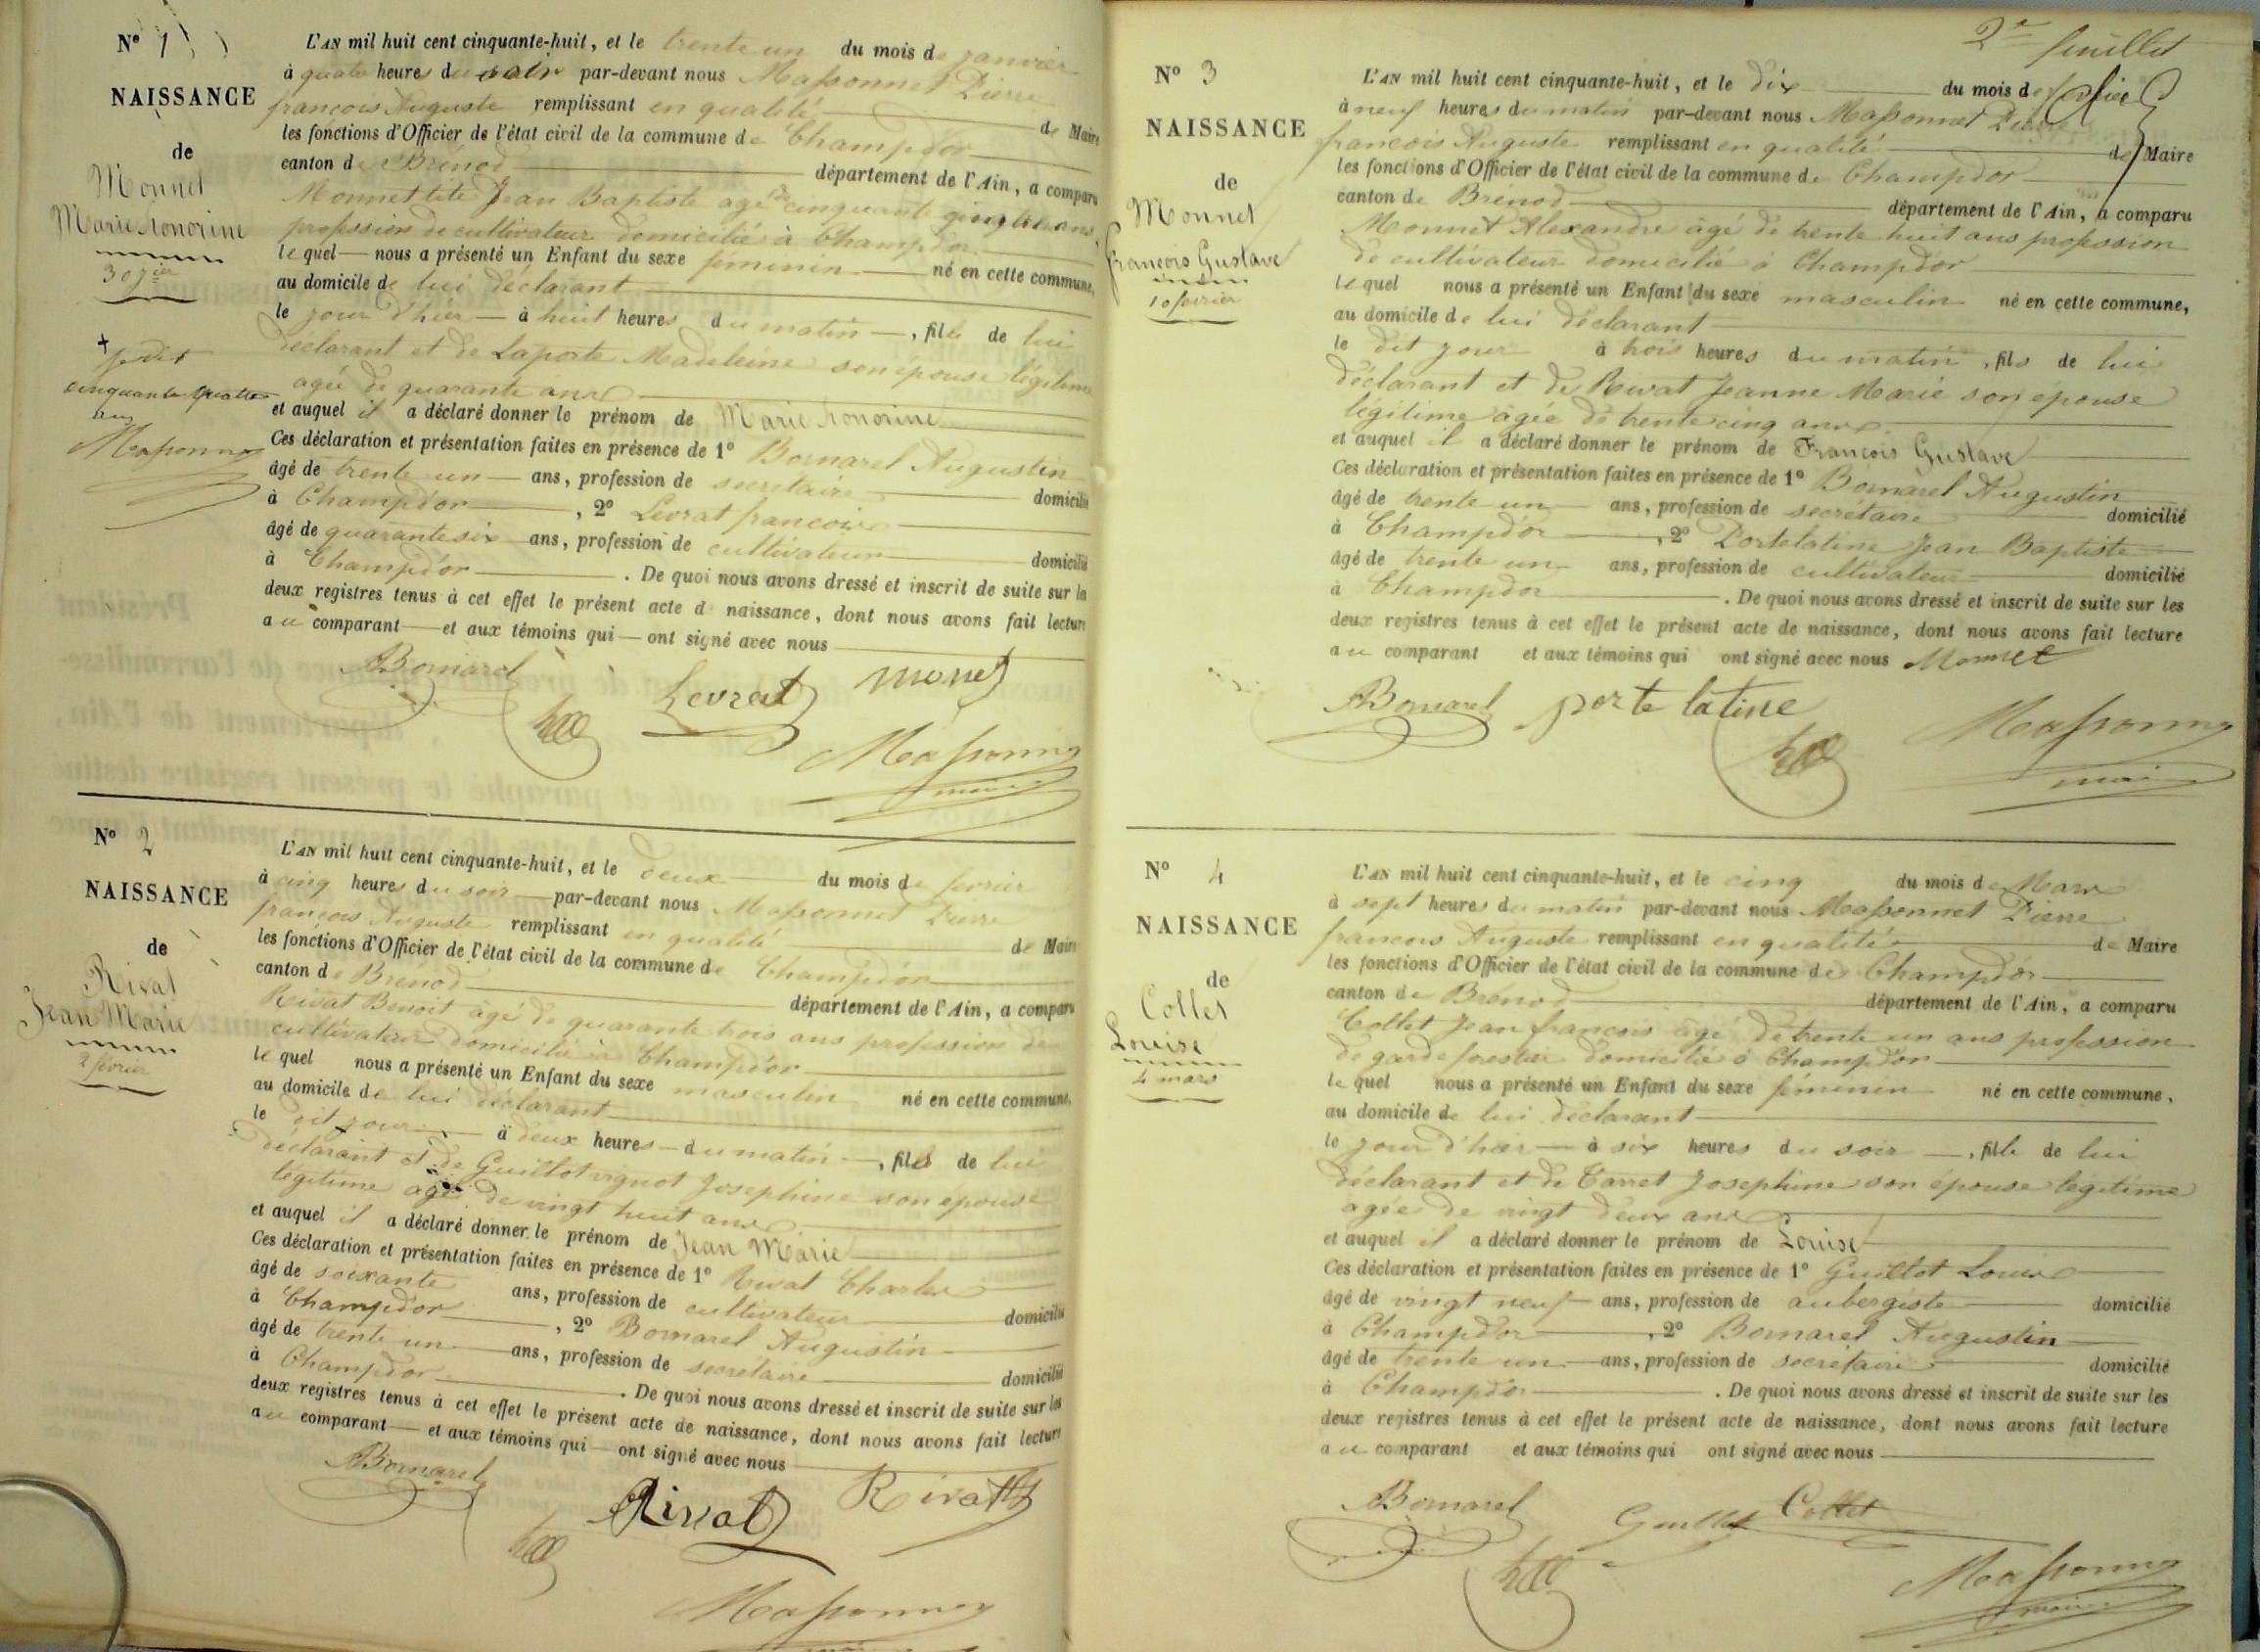 N° 1
NAISSANCE
de
Monnet
Marie honorine
30 jier
+
je dis
cinquante quatre
ans
Massonnet
L'AN mil huit cent cinquante-huit, et le trente un du mois de janvier
à quatre heures du soir par-devant nous Massonnet Pierre
françois Auguste remplissant en qualité de Maire
les fonctions d'Officier de l'état civil de la commune de Champdor
canton de Brénod département de l'Ain, a comparu
Monnet tité Jean Baptiste agé cinquante ans,
profession de cultivateur domicilié à Champdor
lequel nous a présenté un Enfant du sexe féminin né en cette commune,
au domicile de lui déclarant
le jour d'hier à huit heures du matin, fille de lui
déclarant et de Laporte Madeleine son épouse légitime
agée de quarante ans
et auquel il a déclaré donner le prénom de Marie honorine
Ces déclaration et présentation faites en présence de 1° Bornarel Augustin
âgé de trente un ans, profession de secrétaire domicilié
à Champdor, 2° Levrat françois
âgé de quarante six ans, profession de cultivateur domicilié
à Champdor. De quoi nous avons dressé et inscrit de suite sur les
deux registres tenus à cet effet le présent acte de naissance, dont nous avons fait lecture
au comparant et aux témoins qui ont signé avec nous
ABornarel Levrat monet
Massonnet
maire
N° 2
NAISSANCE
de
Rivat
Jean Marie
2 février
L'AN mil huit cent cinquante-huit, et le deux du mois de fevrier
à cinq heures du soir par-devant nous Massonnet Pierre
françois Auguste remplissant en qualité de Maire
les fonctions d'Officier de l'état civil de la commune de Champdor
canton de Brénod département de l'Ain, a comparu
Rivat Benoit agé de quarante trois ans profession de
cultivateur domicilié à Champdor
lequel nous a présenté un Enfant du sexe masculin né en cette commune,
au domicile de lui déclarant
le dit jour à deux heures du matin, fils de lui
déclarant et de Guillot vignot Josephine son épouse
légitime agé de vingt huit ans
et auquel il a déclaré donner le prénom de Jean Marie
Ces déclaration et présentation faites en présence de 1° Rivat Charles
âgé de soixante ans, profession de cultivateur domicilié
à Champdor, 2° Bornarel Augustin
âgé de trente un ans, profession de secrétaire domicilié
à Champdor. De quoi nous avons dressé et inscrit de suite sur les
deux registres tenus à cet effet le présent acte de naissance, dont nous avons fait lecture
au comparant et aux témoins qui ont signé avec nous
ABornarel Rivat Rivat
Massonnet
2e feuillet
N° 3
NAISSANCE
de
Monnet
françois Gustave
10 février
L'AN mil huit cent cinquante-huit, et le dix du mois de fevrier
à neuf heures du matin par-devant nous Massonnet Pierre
françois Auguste remplissant en qualité de Maire
les fonctions d'Officier de l'état civil de la commune de Champdor
canton de Brénod département de l'Ain, a comparu
Monnet Alexandre âgé de trente huit ans profession
de cultivateur domicilié à Champdor
lequel nous a présenté un Enfant du sexe masculin né en cette commune,
au domicile de lui déclarant
le dit jour à trois heures du matin, fils de lui
déclarant et de Rivat Jeanne Marie son épouse
légitime âgée de trente cinq ans
et auquel il a déclaré donner le prénom de François Gustave
Ces déclaration et présentation faites en présence de 1° Bornarel Augustin
âgé de trente un ans, profession de secrétaire domicilié
à Champdor, 2° Portelatine Jean Baptiste
âgé de trente un ans, profession de cultivateur domicilié
à Champdor. De quoi nous avons dressé et inscrit de suite sur les
deux registres tenus à cet effet le présent acte de naissance, dont nous avons fait lecture
au comparant et aux témoins qui ont signé avec nous Monnet
ABornarel porte latine Massonnet
maire
N° 4
NAISSANCE
de
Collet
Louise
4 mars
L'AN mil huit cent cinquante-huit, et le cinq du mois de Mars
à sept heures du matin par-devant nous Massonnet Pierre
francois Auguste remplissant en qualité de Maire
les fonctions d'Officier de l'état civil de la commune de Champdor
canton de Brénod département de l'Ain, a comparu
Collet Jean françois âgé de trente un ans profession
de garde forestier domicilié à Champdor
lequel nous a présenté un Enfant du sexe féminin né en cette commune,
au domicile de lui déclarant
le jour d'hier à six heures du soir, fille de lui
déclarant et de Carret Josephine son épouse légitime
agée de vingt deux ans
et auquel il a déclaré donner le prénom de Louise
Ces déclaration et présentation faites en présence de 1° Guillot Louis
âgé de vingt neuf ans, profession de aubergiste domicilié
à Champdor, 2° Bornarel Augustin
âgé de trente un ans, profession de secrétaire domicilié
à Champdor. De quoi nous avons dressé et inscrit de suite sur les
deux registres tenus à cet effet le présent acte de naissance, dont nous avons fait lecture
au comparant et aux témoins qui ont signé avec nous
ABornarel Guillot Collet
Massonnet
maire